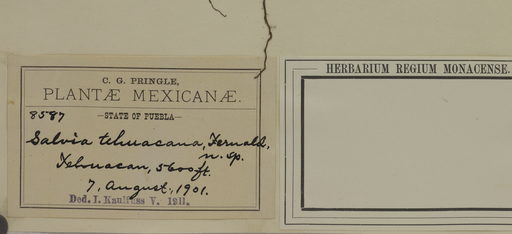 C. G. PRINGLE,
PLANTÆ MEXICANÆ.
8587
—STATE OF PUEBLA—
Salvia tehuacana, Fernald,
n. sp.
Tehuacan, 5600 ft.
7, August, 1901.
Ded. I. Kaulfuss V. 1911.
HERBARIUM REGIUM MONACENSE.